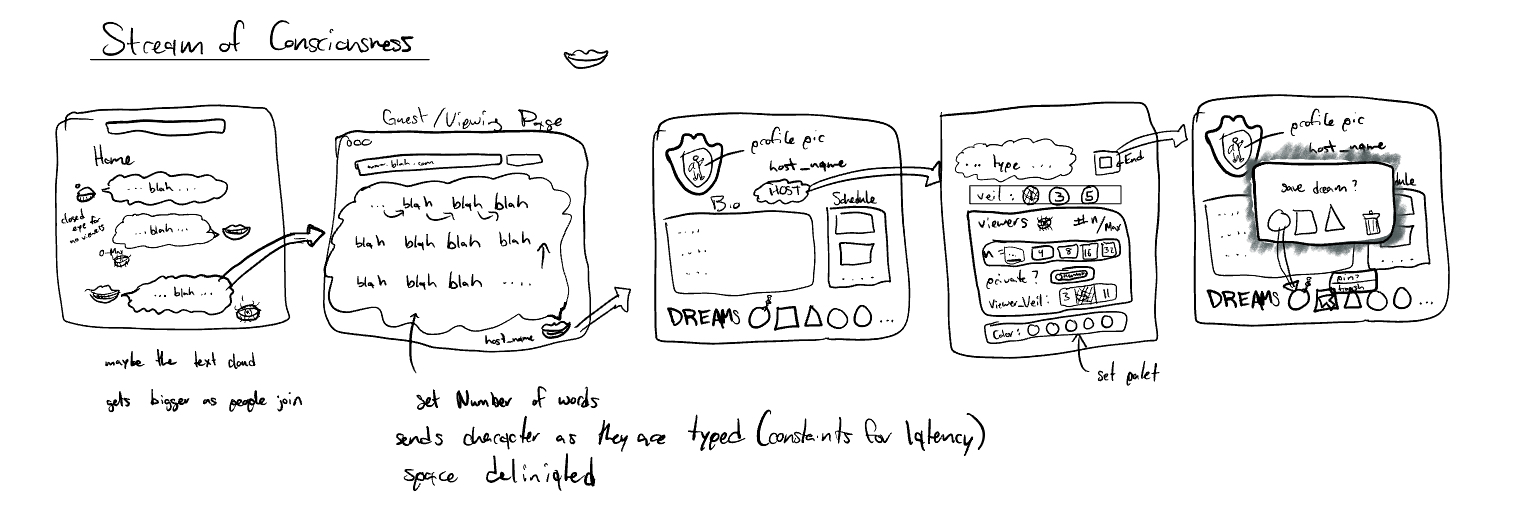 Stream of Consciousness
Home
... blah ...
closed
eye for
no viewers
... blah ...
0-Max
... blah ...
maybe the text cloud
gets bigger as people join
Guest/Viewing Page
www.blah.com
... blah blah blah
blah blah blah blah
blah blah blah ....
host_name
set Number of words
sends character as they are typed (constaints for latency)
space deliniated
profile pic
host_name
HOST
Bio
Schedule
....
....
....
....
DREAMS
...
... type ...
End
veil: 3 5
viewers # n/Max
n = ... 4 8 16 32
private?
Viewer_Veil: 3 11
Color:
set palet
profile pic
host_name
save dream?
dule
....
....
....
....
pin?
trash
DREAMS
...